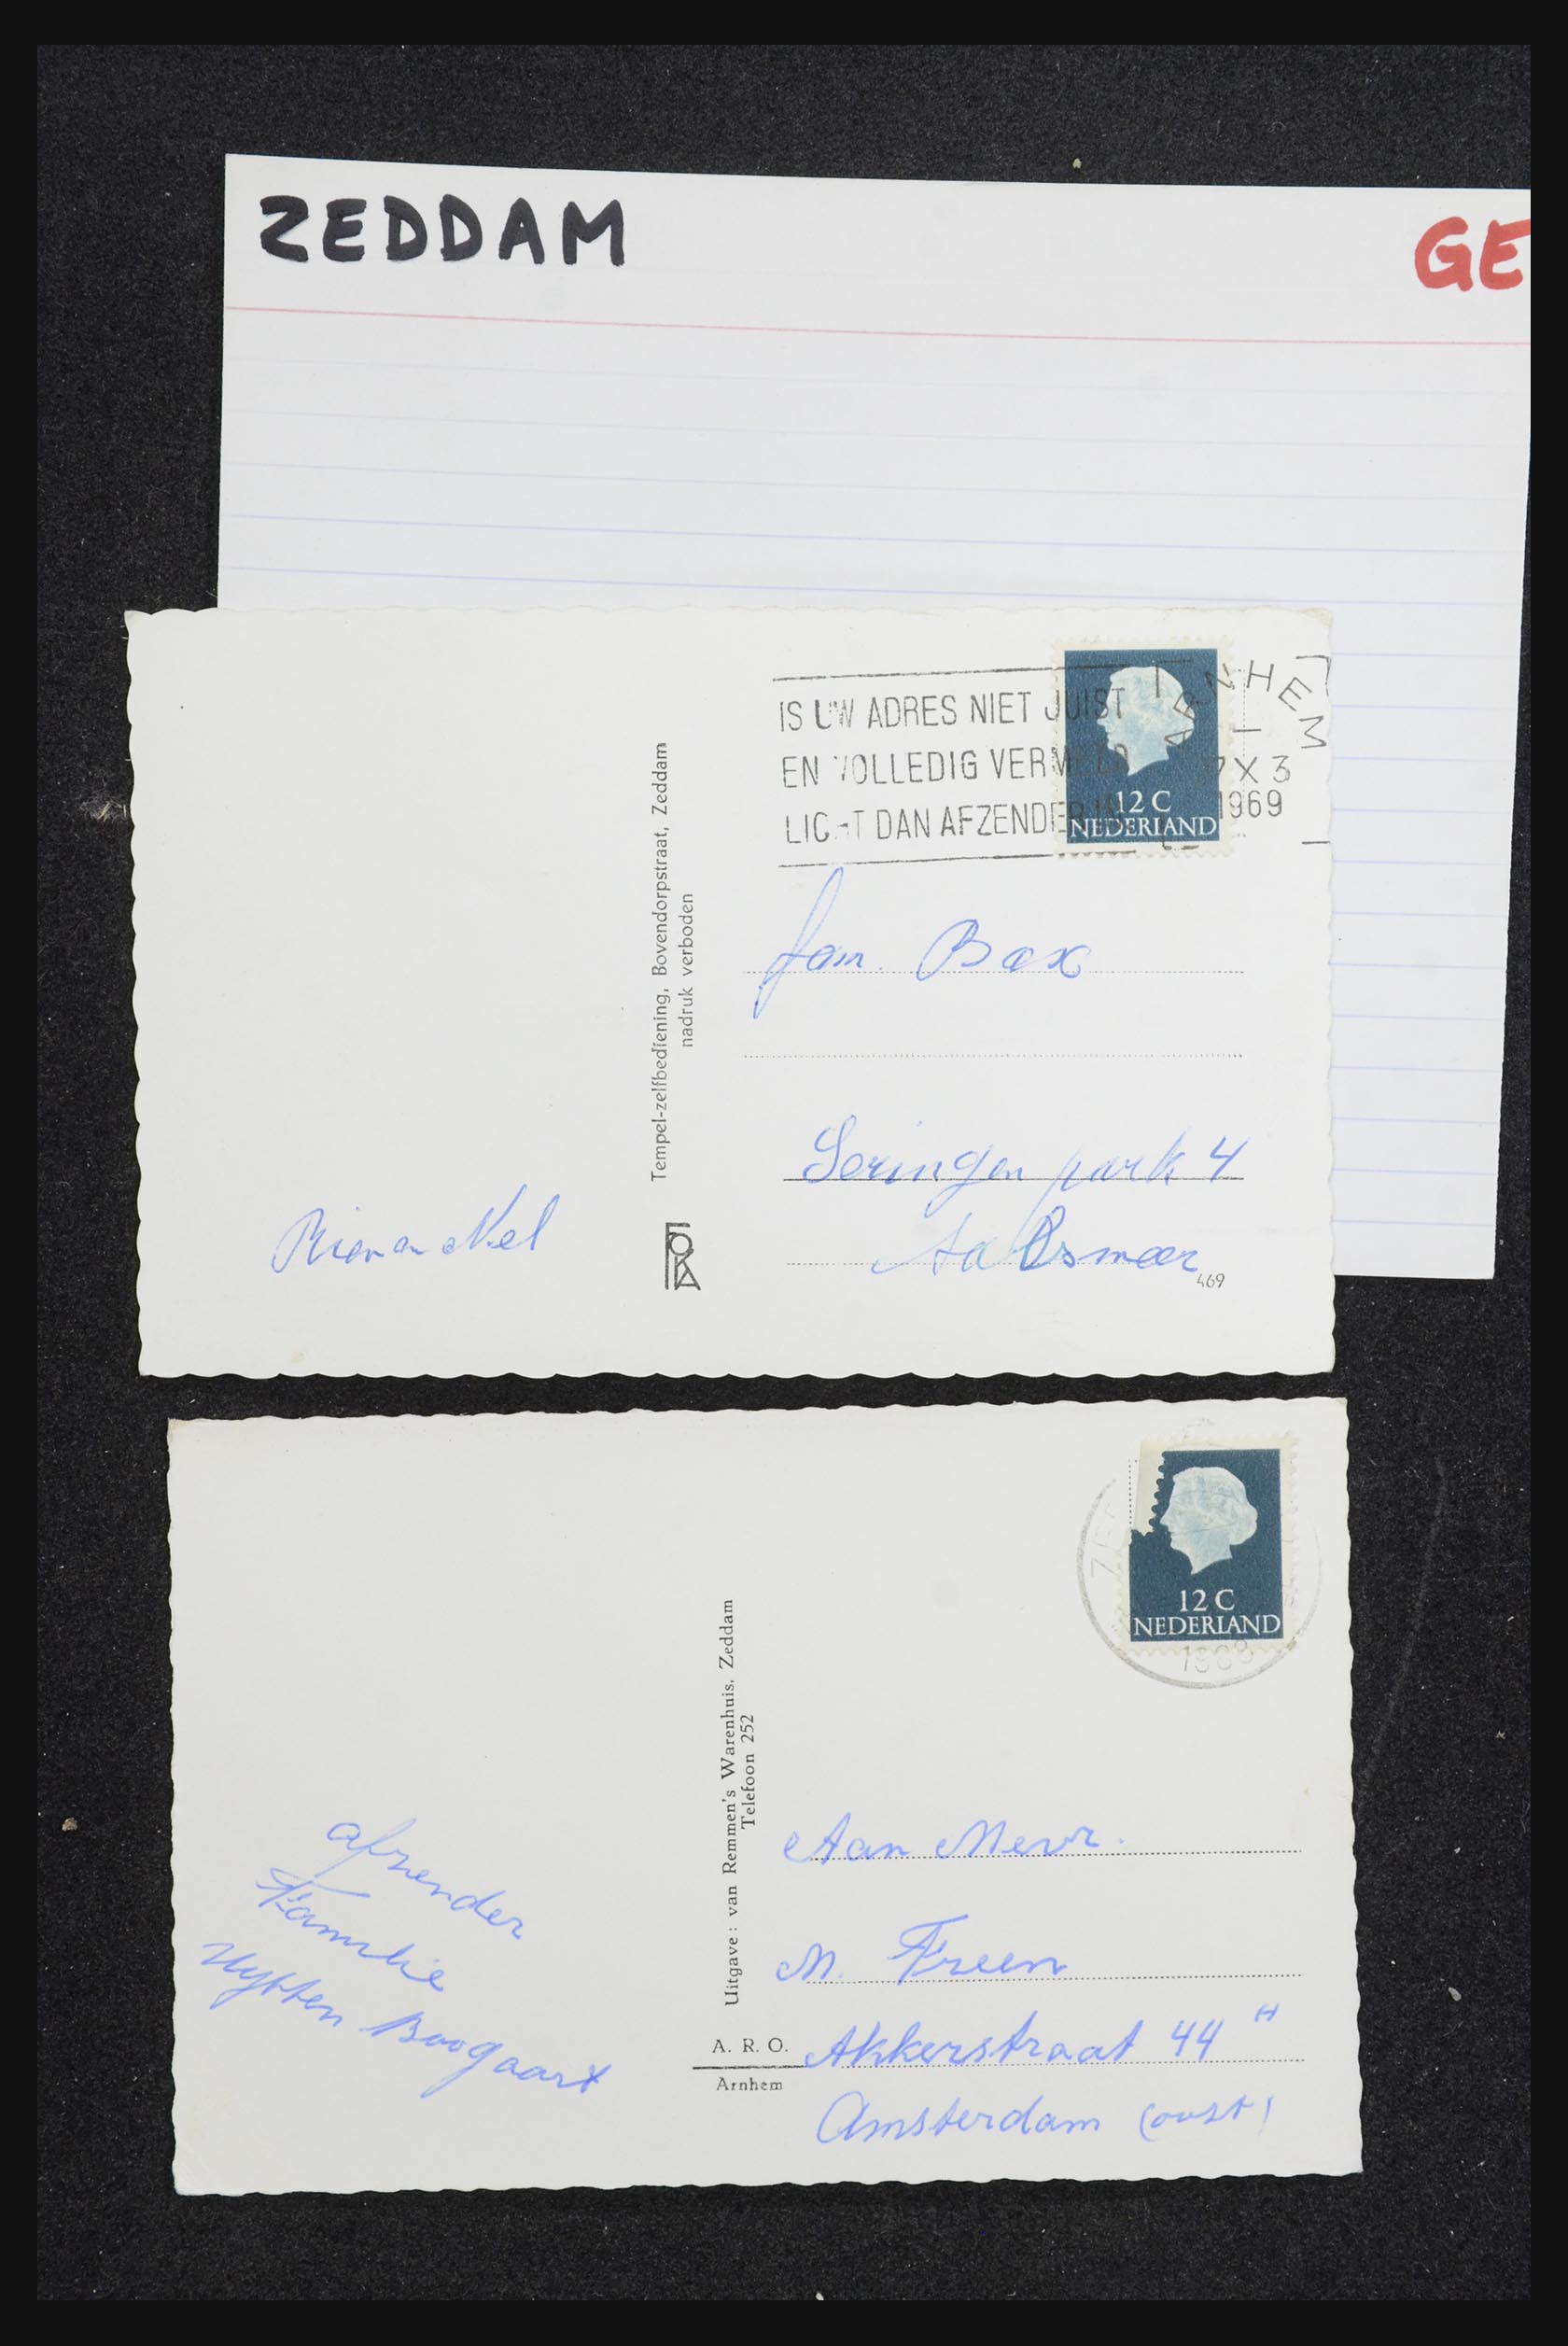 ZEDDAM
GE
IS UW ADRES NIET JUIST
EN VOLLEDIG VERMELD
LICHT DAN AFZENDER IN
ARNHEM
X 3
1969
12 C
NEDERLAND
Tempel-zelfbediening, Bovendorpstraat, Zeddam
nadruk verboden
fam. Bax
Seringen park 4
Aalsmeer
469
Rien en Nel
FOKA
12 C
NEDERLAND
Uitgave : van Remmen's Warenhuis, Zeddam
Telefoon 252
afzender
Familie
Uytten Boogaart
Aan Mevr.
M. Freen
A. R. O.
Arnhem
Akkerstraat 44 H
Amsterdam (oost)